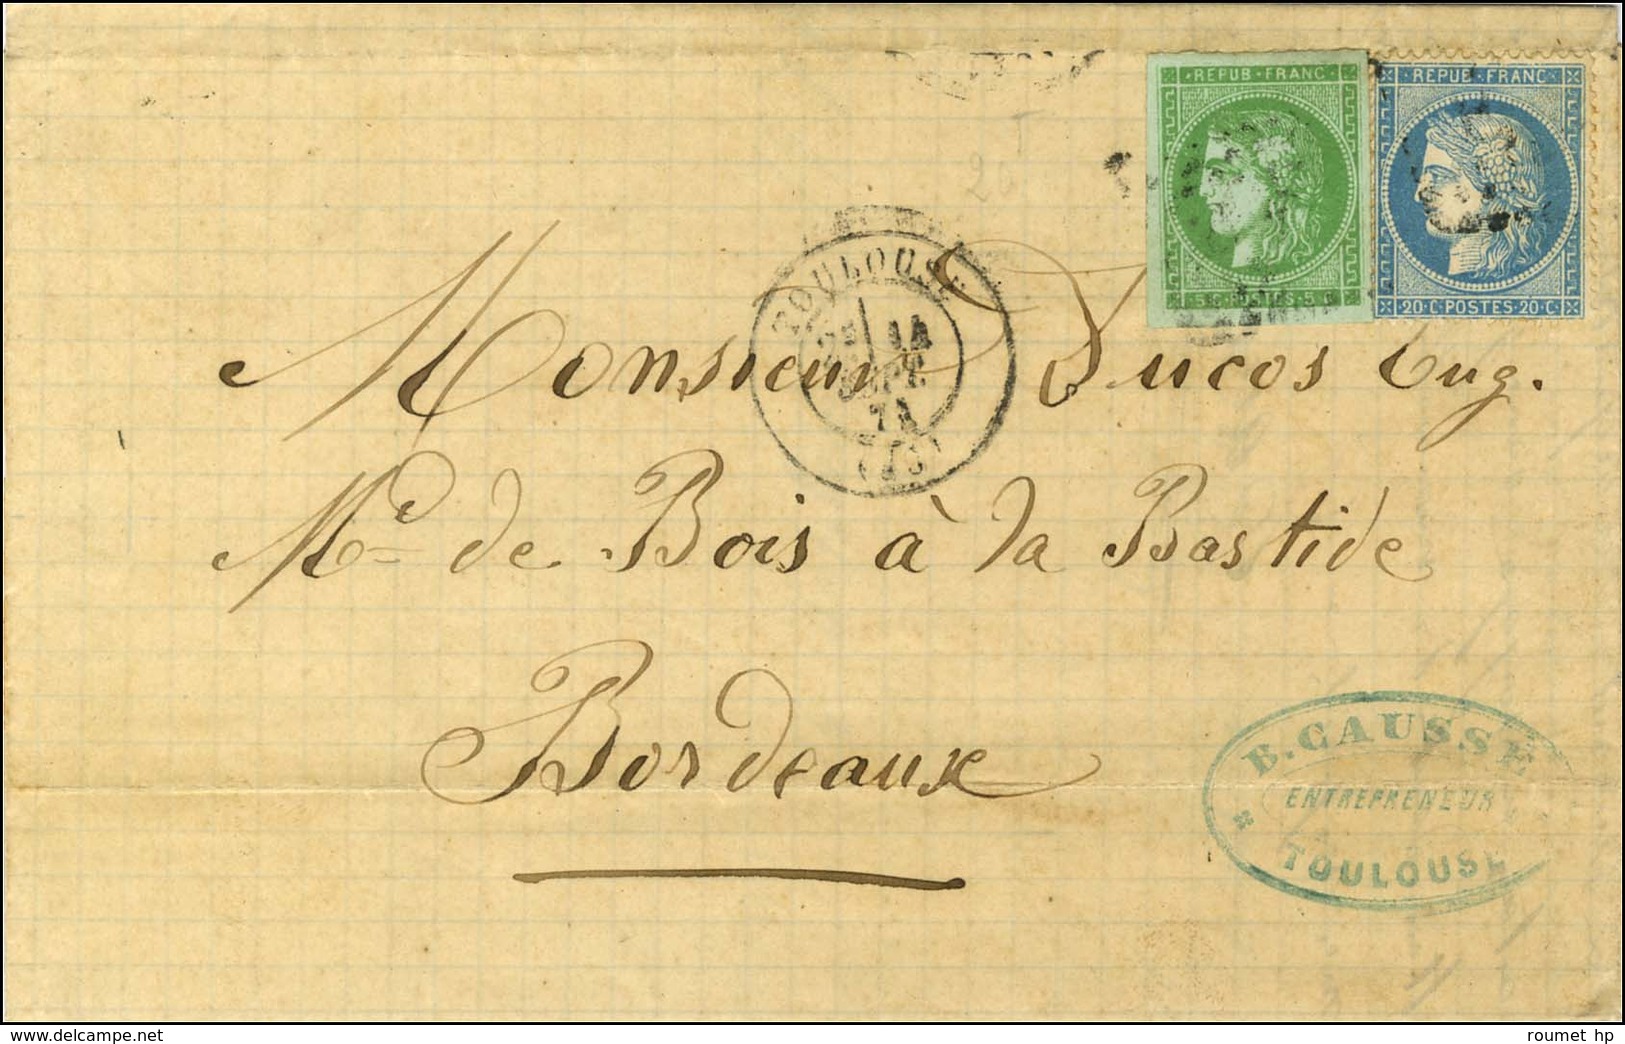 REPUB·FRANC
REPUB·FRANC
20·C·POSTES·20·C·
TOULOUSE
14
SEPT.
71
Monsieur Ducos Eug.
Md de Bois à la Bastide
Bordeaux
B. CAUSSE
ENTREPRENEUR
TOULOUSE
www.delcampe.net
roumet hp